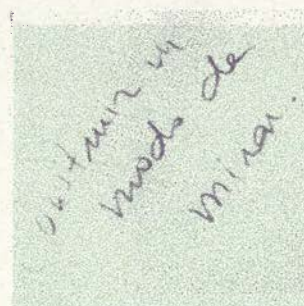 mi
modo de
mirar.